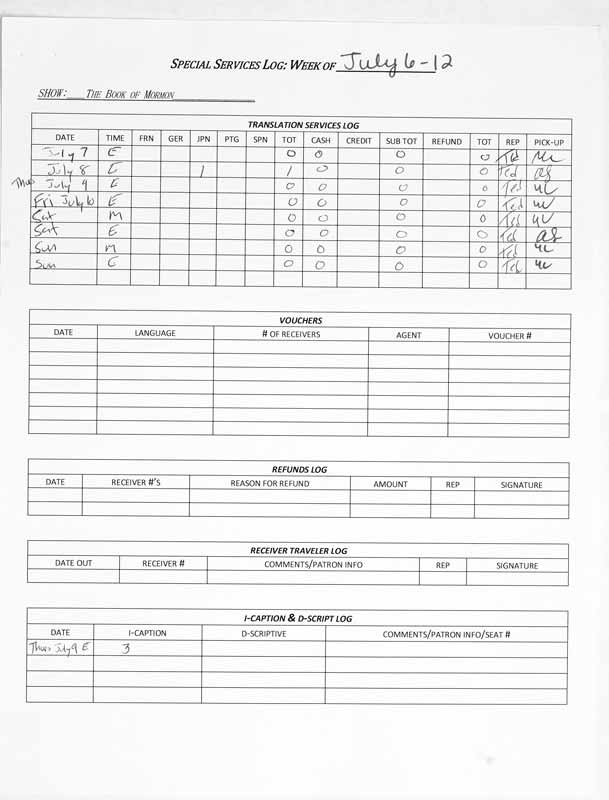 SPECIAL SERVICES LOG: WEEK OF July 6-12
SHOW: THE BOOK OF MORMON
TRANSLATION SERVICES LOG
DATE TIME FRN GER JPN PTG SPN TOT CASH CREDIT SUB TOT REFUND TOT REP PICK-UP
July 7 E 0 0 0 0 Ted
July 8 E 1 1 0 0 0 Ted as
Thurs July 9 E 0 0 0 0 Ted
Fri July 10 E 0 0 0 0 Ted
Sat M 0 0 0 0 Ted
Sat E 0 0 0 0 Ted as
Sun M 0 0 0 0 Ted
Sun E 0 0 0 0 Ted
VOUCHERS
DATE LANGUAGE # OF RECEIVERS AGENT VOUCHER #
REFUNDS LOG
DATE RECEIVER #'S REASON FOR REFUND AMOUNT REP SIGNATURE
RECEIVER TRAVELER LOG
DATE OUT RECEIVER # COMMENTS/PATRON INFO REP SIGNATURE
I-CAPTION & D-SCRIPT LOG
DATE I-CAPTION D-SCRIPTIVE COMMENTS/PATRON INFO/SEAT #
Thurs July 9 E 3